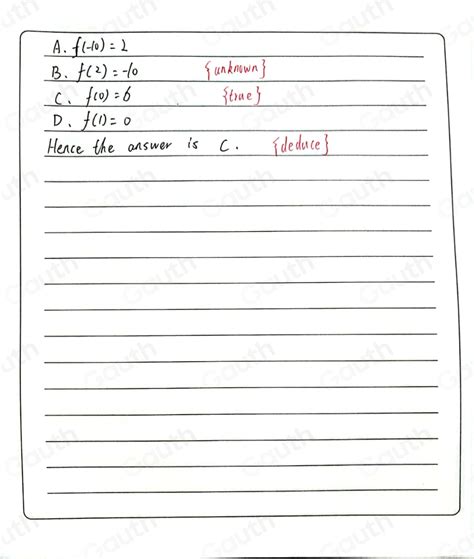 A. f(-10) = 2
B. f(2) = -10 {unknown}
C. f(0) = 6 {true}
D. f(1) = 0
Hence the answer is C. {deduce}